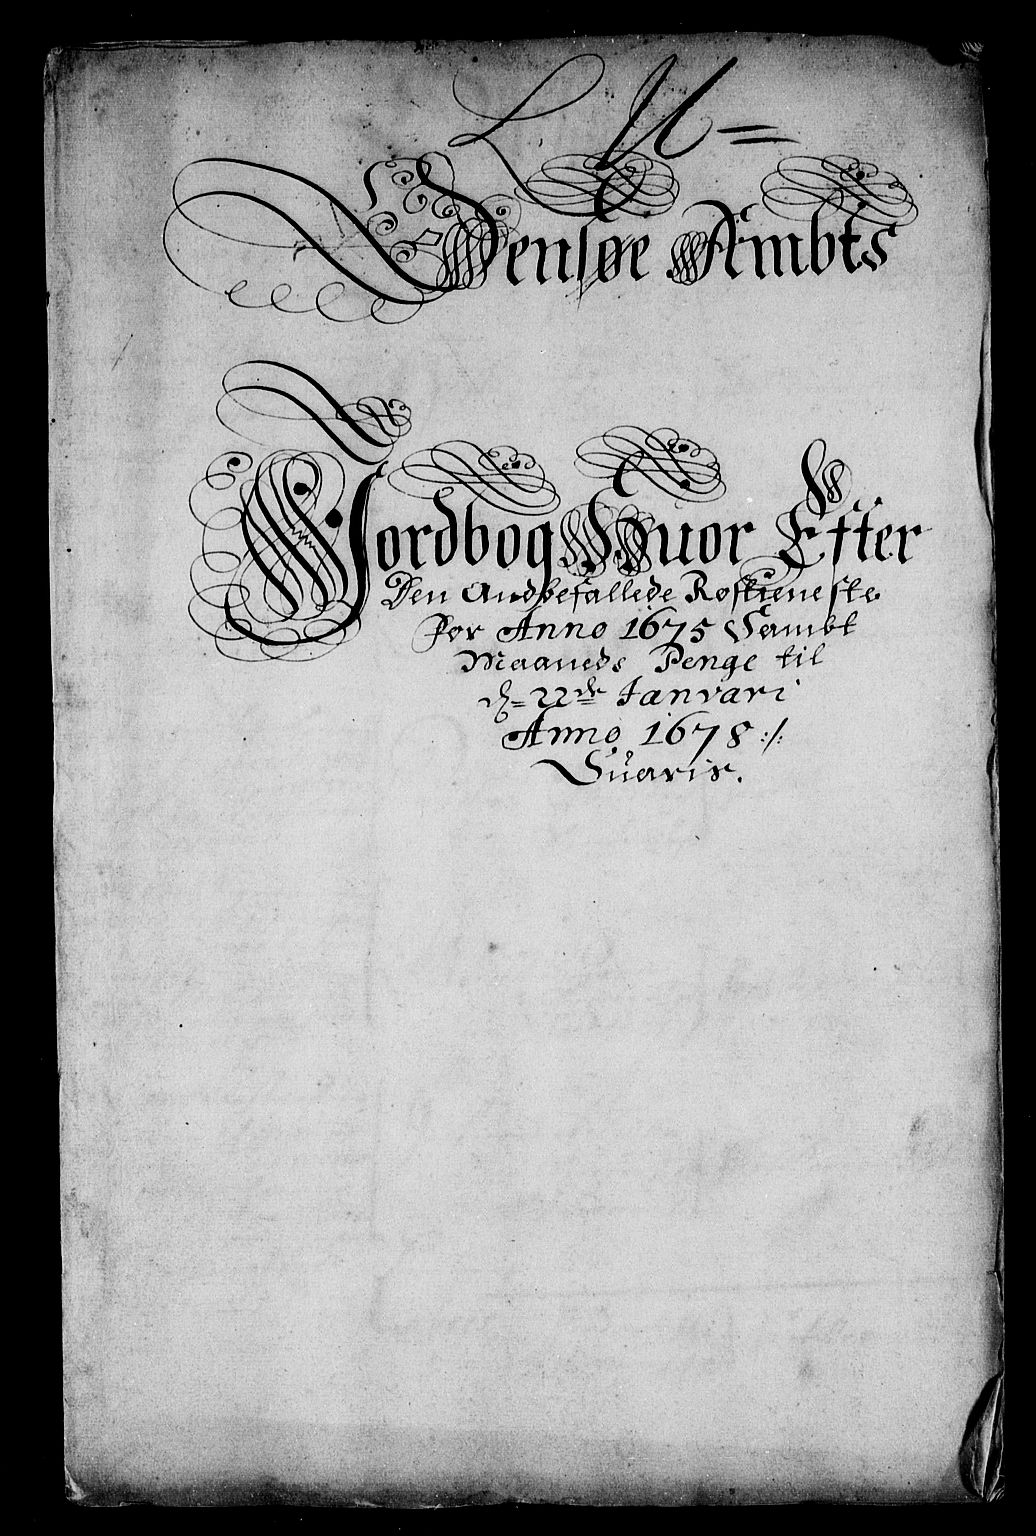 Lu=
Wensøe Ambts
Jordbog Huor Efter
Den Andbefallede Rostieneste
For Anno 1675 Sambt
Maaneds Penge til
d= 22de Ianvari
Anno 1678 :/:
Suaris.